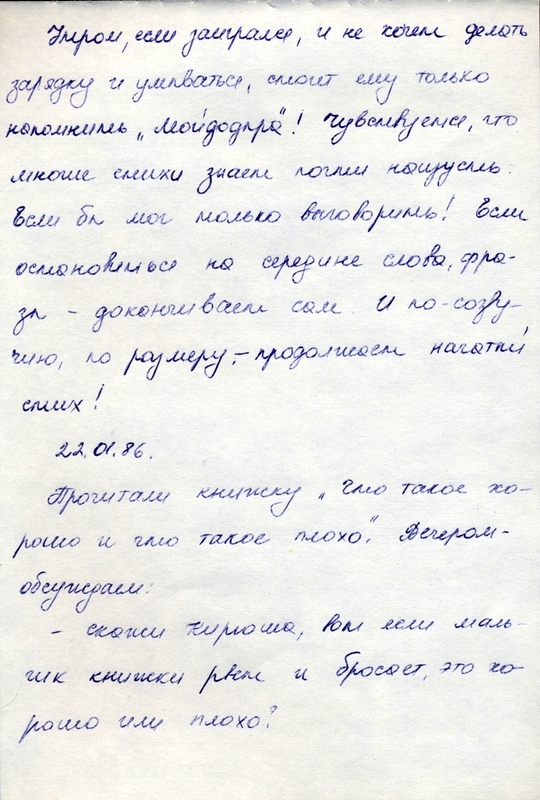 Утром, если заигрался, и не хочет делать
зарядку и умываться, стоит ему только
напомнить „Мойдодыра"! Чувствуется, что
многие стихи знает почти наизусть.
Если бы мог только выговорить! Если
остановиться на середине слова, фра-
зы - доканчивает сам. И по-созву-
чию, по размеру, - продолжает начатый
стих!
22.01.86.
Прочитали книжку „Что такое хо-
рошо и что такое плохо". Вечером-
обсуждаем:
- скажи Кирюша, вот если маль-
чик книжки рвет и бросает, это хо-
рошо или плохо?